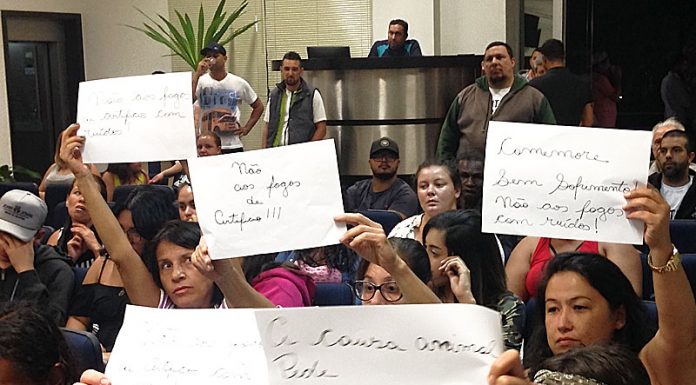 Não aos fogos
de artificio com
ruídos!
Não
aos fogos
de
Certifico!!!
Comemore
Sem Sofrimento
Não aos fogos
com ruídos!
A causa animal
Pede